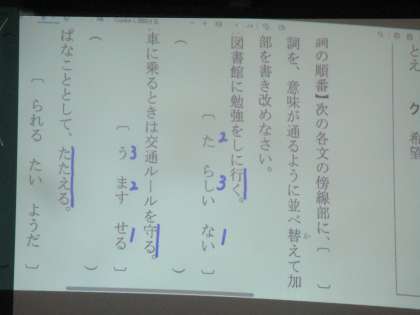 とえ　ク　希望
詞の順番】次の各文の傍線部に、〔　　〕
詞を、意味が通るように並べ替えて加
か
部を書き改めなさい。
図書館に勉強をしに行く。
〔　た　らしい　ない　〕
2　3　1
（　　）
車に乗るときは交通ルールを守る。
〔　う　ます　せる　〕
3　2　1
（　　）
ぱなこととして、たたえる。
〔　られる　たい　ようだ　〕